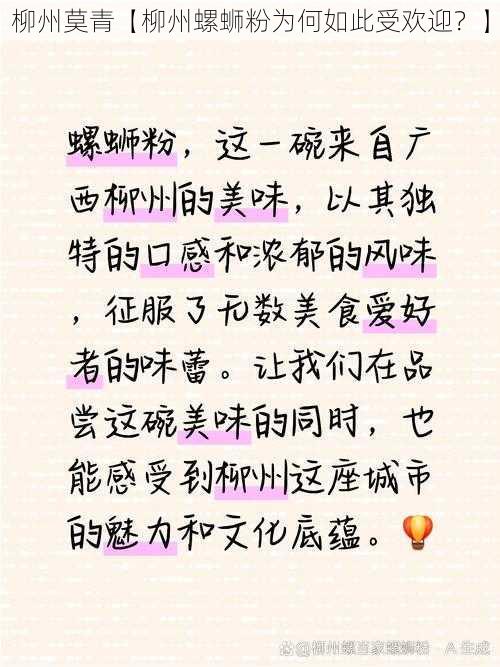 柳州莫青【柳州螺蛳粉为何如此受欢迎？】
螺蛳粉，这一碗来自广
西柳州的美味，以其独
特的口感和浓郁的风味
，征服了无数美食爱好
者的味蕾。让我们在品
尝这碗美味的同时，也
能感受到柳州这座城市
的魅力和文化底蕴。
柳州螺当家螺蛳粉 · A 生成